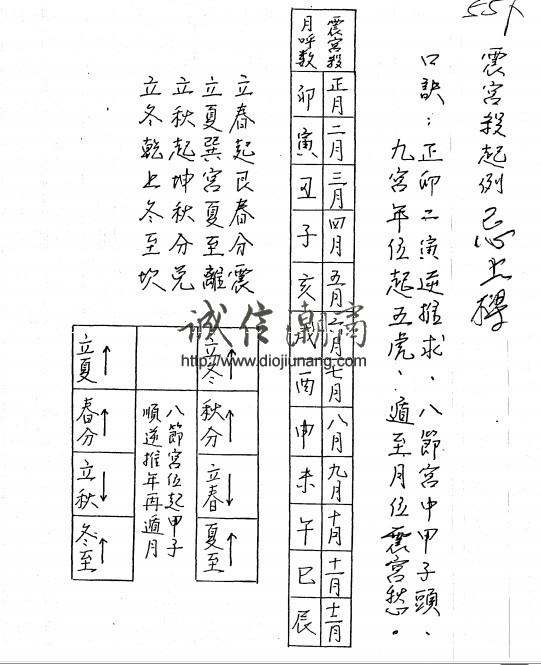 55X
震宮殺起例 忌上樑
口訣：正卯二寅逆推求、八節宮中甲子頭、
九宮年位起五虎、遁至月位震宮愁。
震宮殺 正月 二月 三月 四月 五月 六月 七月 八月 九月 十月 十一月 十二月
月呼数 卯 寅 丑 子 亥 戌 酉 申 未 午 巳 辰
立春起艮春分震
立夏巽宮夏至離
立秋起坤秋分兑
立冬乾上冬至坎
立冬↑ 秋分↑ 立春↓ 夏至↑
八節宮位起甲子
順逆推年再遁月
立夏↑ 春分↑ 立秋↓ 冬至↑
诚信
http://www.diojiunang.com